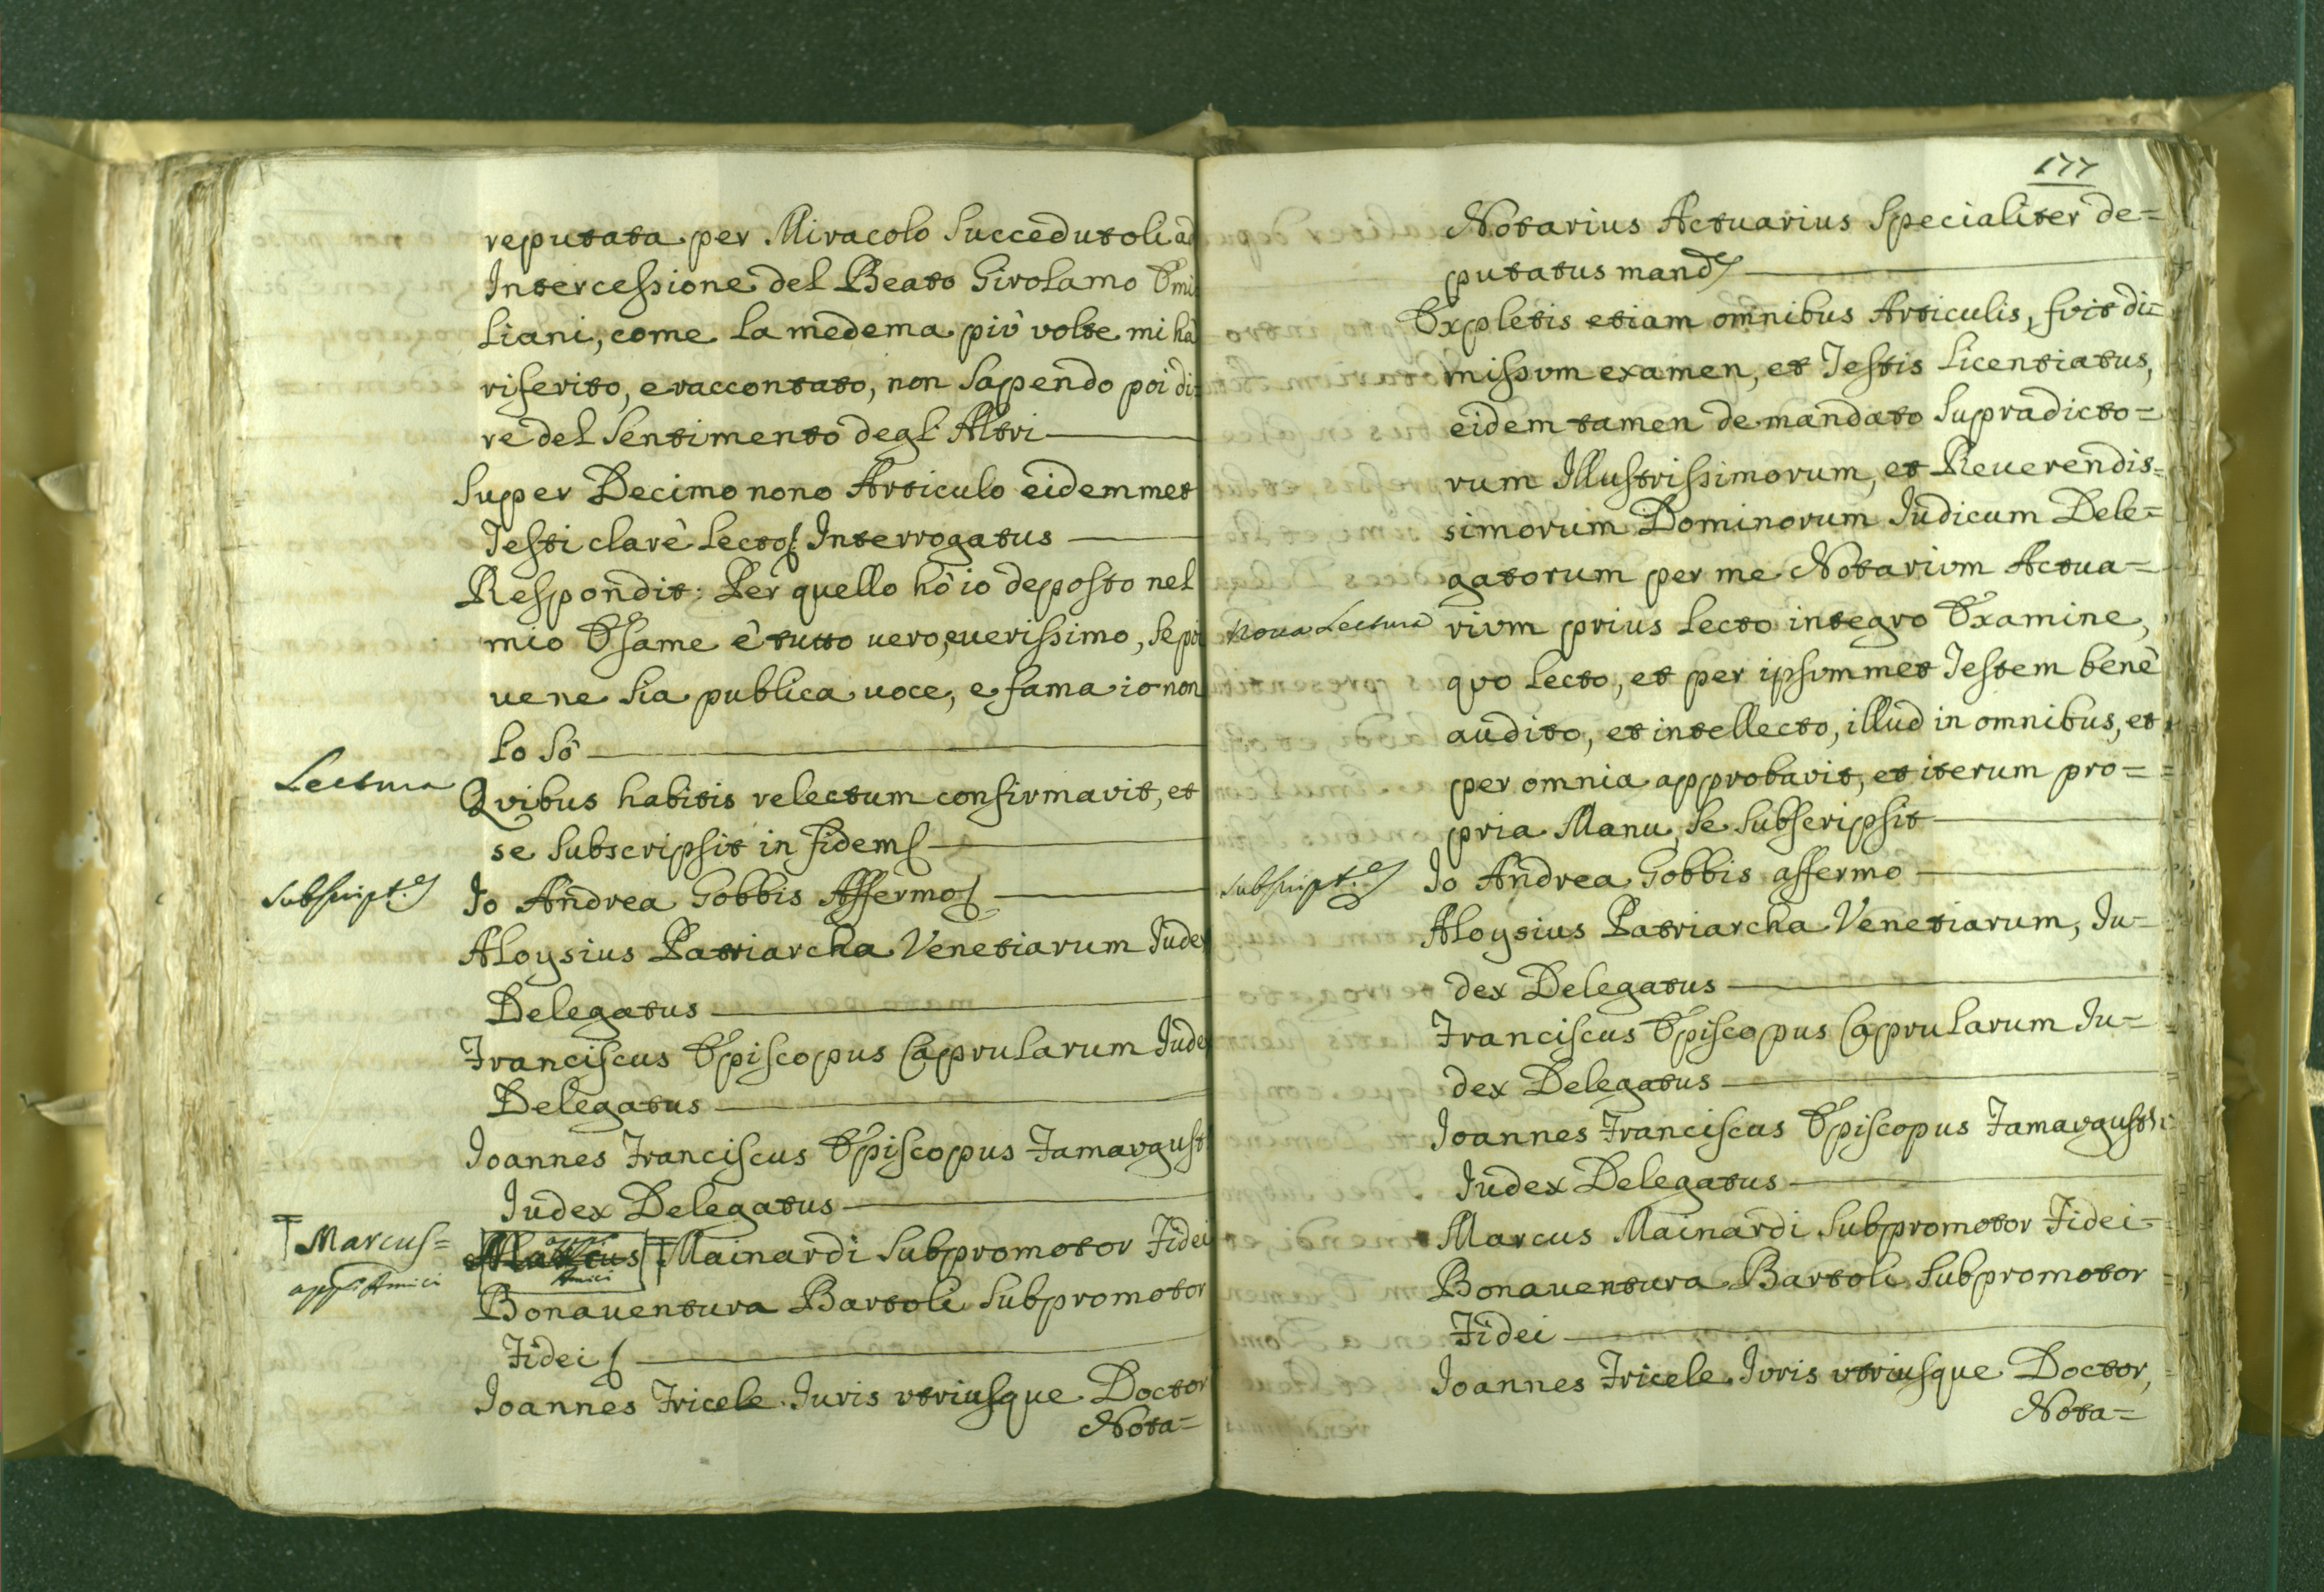 reputata per Miracolo Succedutoli ad
Intercessione del Beato Girolamo Emi
liani, come la medema più volte mi hà
riferito, e raccontato, non Sapendo poi di=
re del Sentimento degl' Altri
Super Decimo nono Articulo eidemmet
Testi clarè Lecto Interrogatus
Respondit: Per quello hò io deposto nel
mio Esame è tutto uero, euerissimo, Se poi
ue ne Sia publica uoce, e fama io non
Lo Sò
Lectura
Quibus habitis relectum confirmavit, et
se Subscripsit in fidem
Subscript.
Io Andrea Gobbis Affermo
Aloysius Patriarcha Venetiarum Iudex
Delegatus
Franciscus Episcopus Caprularum Iudex
Delegatus
Ioannes Franciscus Episcopus Famaugust
Iudex Delegatus
Marcus=
Marcus Mainardi Subpromotor Fidei
Amici
Bonauentura Bartoli Subpromotor
Fidei
Ioannes Fricele Iuris utriusque Doctor
Nota=
177
Notarius Actuarius Specialiter de=
putatus mand
Expletis etiam omnibus Articulis, fuit di=
missum examen, et Testis Licentiatus,
eidem tamen de mandato Supradicto=
rum Illustrissimorum, et Reuerendis=
simorum Dominorum Iudicum Dele=
gatorum per me Notarium Actua=
Noua Lectura
rium prius Lecto integro Examine,
quo Lecto, et per ipsummet Testem benè
audito, et intellecto, illud in omnibus, et
per omnia approbavit, et iterum pro=
pria Manu Se Subscripsit
Subscript.
Io Andrea Gobbis affermo
Aloysius Patriarcha Venetiarum, Iu=
dex Delegatus
Franciscus Episcopus Caprularum Iu=
dex Delegatus
Ioannes Franciscus Episcopus Famaugusti
Iudex Delegatus
Marcus Mainardi Subpromotor Fidei
Bonauentura Bartoli Subpromotor
Fidei
Ioannes Fricele Iuris utriusque Doctor,
Nota=